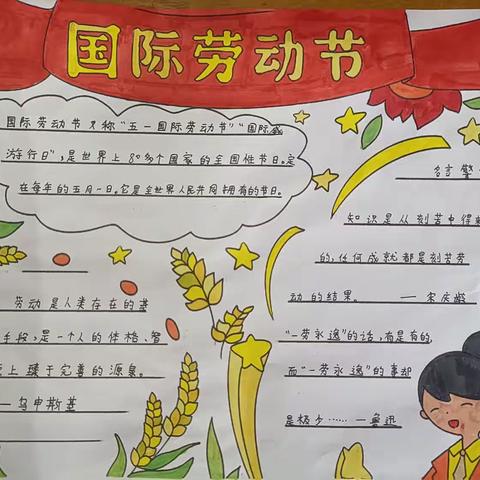 国际劳动节
国际劳动节又称"五一国际劳动节""国际
游行日",是世界上80多个国家的全国性节日。定
在每年的五月一日。它是全世界人民共同拥有的节日。
劳动是人类存在的基
手段,是一个人的体格、智
上臻于完善的源泉。
——乌申斯基
名言警
知识是从刻苦中得
的,任何成就都是刻苦劳
动的结果。——宋庆龄
"一劳永逸"的话,有是有的,
而"一劳永逸"的事却
是极少……—鲁迅